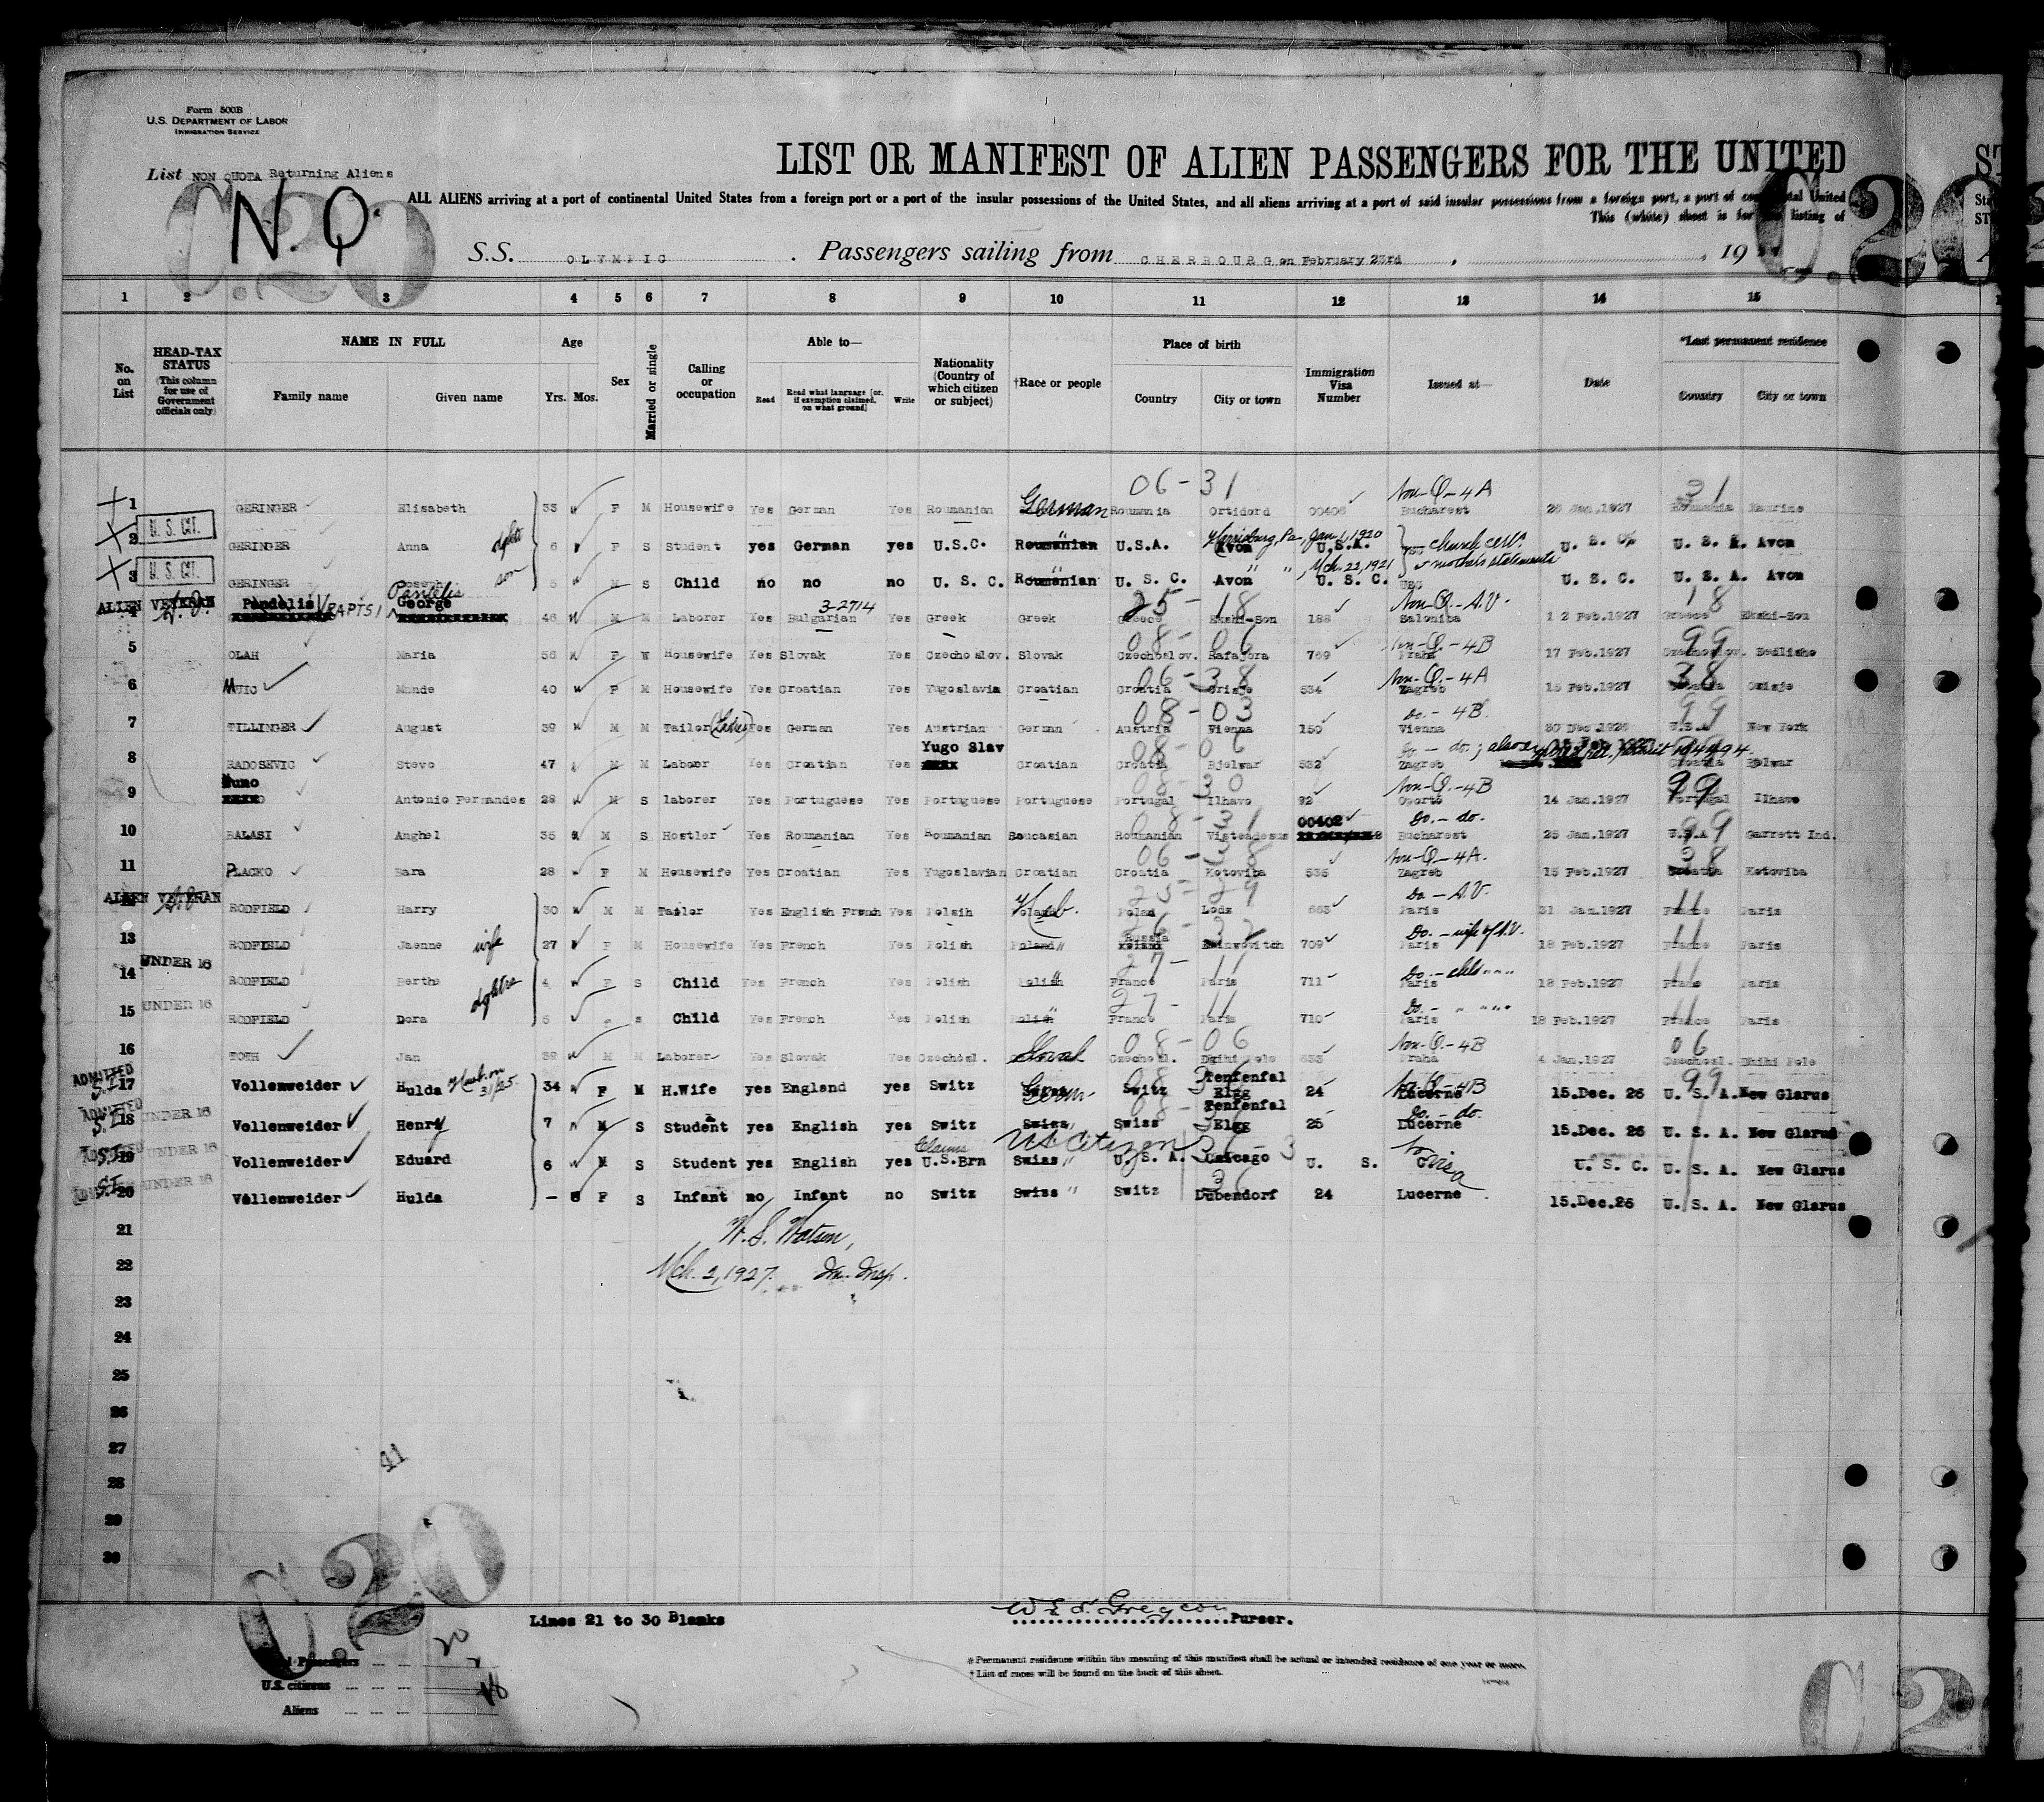 Form 500B
U.S. DEPARTMENT OF LABOR
IMMIGRATION SERVICE
List NON QUOTA Returning Aliens
N.Q.
C.20
LIST OR MANIFEST OF ALIEN PASSENGERS FOR THE UNITED
ST
ALL ALIENS arriving at a port of continental United States from a foreign port or a port of the insular possessions of the United States, and all aliens arriving at a port of said insular possessions from a foreign port, a port of continental United
Sta
This (white) sheet is for the listing of
ST
C.20
S.S. OLYMPIC . Passengers sailing from CHERBOURG on February 23rd , , 19
1 2 3 4 5 6 7 8 9 10 11 12 13 14 15
No. on List
HEAD-TAX STATUS (This column for use of Government officials only)
NAME IN FULL
Family name Given name
Age
Yrs. Mos.
Sex
Married or single
Calling or occupation
Able to—
Read Read what language [or, if exemption claimed, on what ground] Write
Nationality (Country of which citizen or subject)
†Race or people
Place of birth
Country City or town
Immigration Visa Number
Issued at—
Date
*Last permanent residence
Country City or town
06-31 Non-Q-4A 31
1 GERINGER Elisabeth 33 F M Housewife Yes German Yes Roumanian German Roumania Ortidord 00406 Bucharest 26 Jan.1927 Roumania
U.S. CIT. Harrisburg, Pa., Jan. 1, 1920
2 GERINGER Anna 6 F S Student yes German yes U.S.C. Roumanian U.S.A. Avon U.S.A. church cert. U. S. A. Avon
U.S. CIT. Mch. 22, 1921 & mother's statements
3 GERINGER Joseph son 5 M S Child no no no U. S. C. Roumanian U. S. C. Avon U. S. C. USC U. S. C. U. S. A. Avon
ALIEN VETERAN Pandelis RAPTSI Pantelis George 3-2714 25-18 Non-Q.-A.V. 18
4 46 M M Laborer Yes Bulgarian Yes Greek Greek Greece Ekshi-Son 188 Salonika 1 2 Feb.1927 Greece Ekshi-Son
08-06 Non-Q.-4B 99
5 OLAH Maria 56 F W Housewife Yes Slovak Yes Czechoslov. Slovak Czechoslov. Rafajora 769 Praha 17 Feb.1927 Czechoslov. Sedlishe
06-38 Non-Q-4A 38
6 MUIC Mande 40 F M Housewife Yes Croatian Yes Yugoslavia Croatian Croatia Crisje 534 Zagreb 15 Feb.1927 Croatia Crisje
08-03 Do.-4B. 99
7 TILLINGER August 39 M M Tailor (Ladies) Yes German Yes Austrian German Austria Vienna 150 Vienna 30 Dec.1926 U.S.A New York
Yugo Slav 08-06 Do - do; also
8 RADOSEVIC Stevo 47 M M Labaor Yes Croatian Yes Croatian Croatia Bjelwar 532 Zagreb Croatia
Nuno 08-30 Non-Q-4B 99
9 Antonio Fernandes 28 M S laborer Yes Portuguese Yes Portuguese Portuguese Portugal Ilhavo 92 Oporto 14 Jan.1927 Portugal Ilhavo
08-31 00402 Do.-do. 99
10 BALASI Anghel 35 M S Hostler Yes Roumanian Yes Roumanian Roumanian Bucharest 25 Jan.1927 U.S.A Garrett Ind.
06-38 Non-Q-4A. 38
11 PLACKO Bara 28 F M Housewife Yes Croatian Yes Yugoslavian Croatian Croatia Kotoviba 535 Zagreb 15 Feb.1927 Croatia Kotoviba
ALIEN VETERAN 25-29 Do-A.V. 11
RODFIELD Harry 30 M M Tailor Yes English French Yes Polsih Heb. Polad Lodz 663 Paris 31 Jan.1927 France Paris
Russia Do.-wife of A.V. 11
13 RODFIELD Jaenne wife 27 F M Housewife Yes French Yes Polish Poland 709 Paris 18 Feb.1927 France Paris
UNDER 16 27-11 Do.-child 11
14 RODFIELD Berthe 4 F S Child Yes French Yes Polish Polish France Paris 711 Paris 18 Feb.1927 Paris
UNDER 16 27-11 Do.- 11
15 RODFIELD Dora 6 Child Yes French Yes Polish Polish France Paris 710 Paris 18 Feb.1927 France Paris
08-06 Non-Q.-4B 06
16 TOTH Jan 38 M M Laborer Yes Slovak Yes Czechosl. Slovak Czechosl. 633 Praha 4 Jan.1927 Czechosl.
ADMITTED S.I. 17 Vollenweider Hulda 34 F M H.Wife yes England yes Switz Germ Switz Tenfenfal Elgg 24 Lucerne 15.Dec. 26 U. S. A. New Glarus
ADMITTED S.I. 18 UNDER 16 Vollenweider Henry 7 M S Student yes English yes Switz Swiss Swiss Tenfenfal Elgg 25 Lucerne 15.Dec. 26 U. S. A. New Glarus
Claims U.S. Citizen No visa
S.I. 19 UNDER 16 Vollenweider Eduard 6 M S Student yes English yes U.S.Brn Swiss U. S. A. Chicago U. S. U. S. C. U. S. A. New Glarus
S.I. 20 UNDER 16 Vollenweider Hulda — 8 F S Infant no Infant no Switz Swiss Switz Dubendorf 24 Lucerne 15.Dec.26 U. S. A. New Glarus
21
W. S. Watson,
22
Mch. 2, 1927. Im. Insp.
23
24
25
26
27
41
28
29
30
C.20
Lines 21 to 30 Blanks
Purser.
Passengers 20
U.S. citizens 2
Aliens 18
* Permanent residence within the meaning of this manifest shall be actual or intended residence of one year or more.
† List of races will be found on the back of this sheet.
C 2